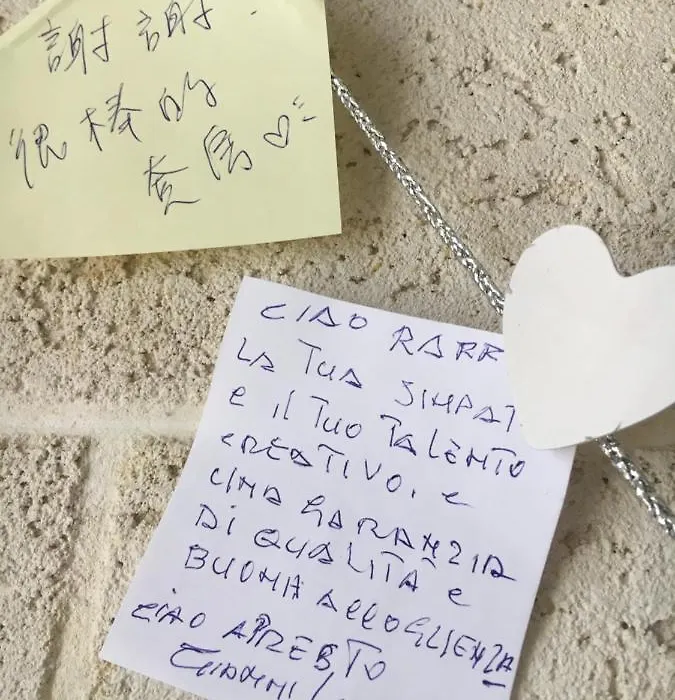 謝謝.
很棒的
套房
CIAO RAFF
LA TUA SIMPAT
E IL TUO TALENTO
CREATIVO. e
UNA GARANZIA
DI QUALITÀ e
BUONA ACCOGLIENZA
CIAO APRESTO